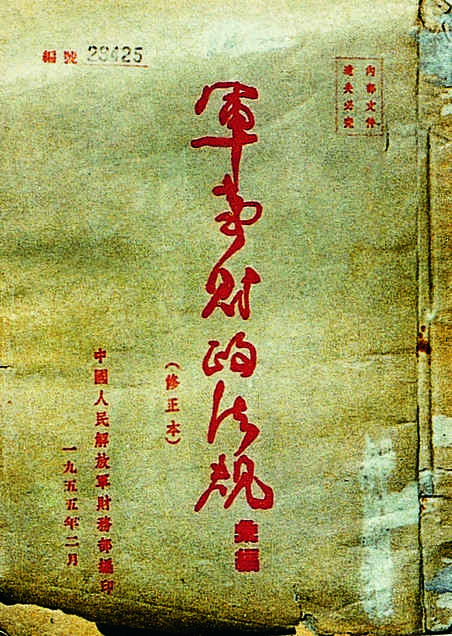 編號 29425
內部文件
遺失必究
軍事財政法規彙編
(修正本)
中國人民解放軍財務部編印
一九五五年二月